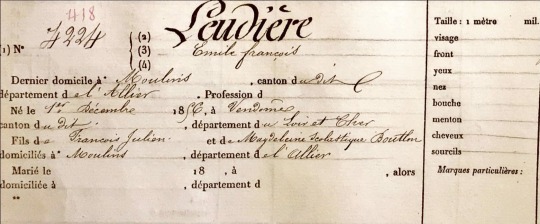 418
(1) N° 4224 (2) (3) (4) Leudière
Emile françois
Dernier domicile à Moulins, canton du dit
département de l'Allier, Profession d
Né le 1er Décembre 1856, à Vendôme
canton du dit, département du Loir et Cher
Fils de François Julien et de Magdeleine Scolastique
domiciliés à Moulins, département de l'Allier
Marié le 18 , à , alors
domiciliée à , département d
Taille : 1 mètre mil.
visage
front
yeux
nez
bouche
menton
cheveux
sourcils
Marques particulières :